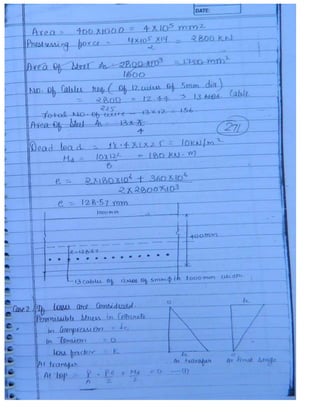 DATE
Area = 400x1000 = 4x10⁵ mm2
Prestressing force = 4x10⁵x14 / 2 = 2800 KN
Area of steel As = 2800x10³ / 1600 = 1750 mm²
No. of Cables req ( of 12 wires of 5mm dia)
= 2800 / 225 = 12.44 > 13 Nos Cable
Total No. of wire = 13x12 = 156
Area of steel As = 13x / 4
271
Dead load = 0.4x1x25 = 10KN/m²
Md = 10x12² / 8 = 180 KN-m
e = 2x180x10⁶ + 360x10⁶ / 2x2800x10³
e = 128.57 mm
1000mm
400mm
e=128.57
13 cables of 12 wires of 5mmΦ in 1000mm width
Case 2 If losses are Considered.
Permissible stress in Concrete
In Compression = fc
In Tension = 0
Loss factor = K
At transfer
At top = P/A - Pe/Z + Md/Z = 0 —(1)
0
fc
At transfer
fc
0
At final stage